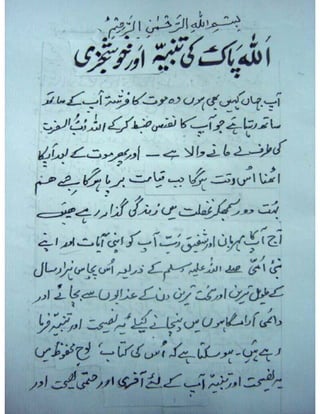 بسم اللہ الرحمٰن الرحیم
اللہ پاک کی تنبیہ اور خوشخبری
آپ جہاں کہیں بھی ہوں وہ موت کا فرشتہ آپ کے ساتھ
ساتھ رہتا ہے جو آپ کا نفس ضبط کر کے اللہ رب العزت
کی طرف لے جانے والا ہے – اور پھر موت کے بعد آپکا
اٹھنا اُس وقت ہوگا جب قیامت برپا ہوگا جسے ہم
بہت دور سمجھکر غفلت میں زندگی گذار رہے ہیں
آج آپکا مہربان اور شفیق رب آپ کو اسی آیات اور اپنے
نبی اُمّی صلے اللہ علیہ وسلم کے ذریعہ اُس پچاس ہزار سال
کے طویل ترین اور سخت ترین دن کے عذابوں سے بچانے اور
دائمی آرامگاہوں میں پہنچانے کیلئے یہ نصیحت اور تنبیہ فرما
رہے ہیں – ہو سکتا ہے کہ اُس کی کتاب لوح محفوظ میں
یہ نصیحت اور تنبیہ آپ کے لئے آخری اور حتمی نصیحت اور